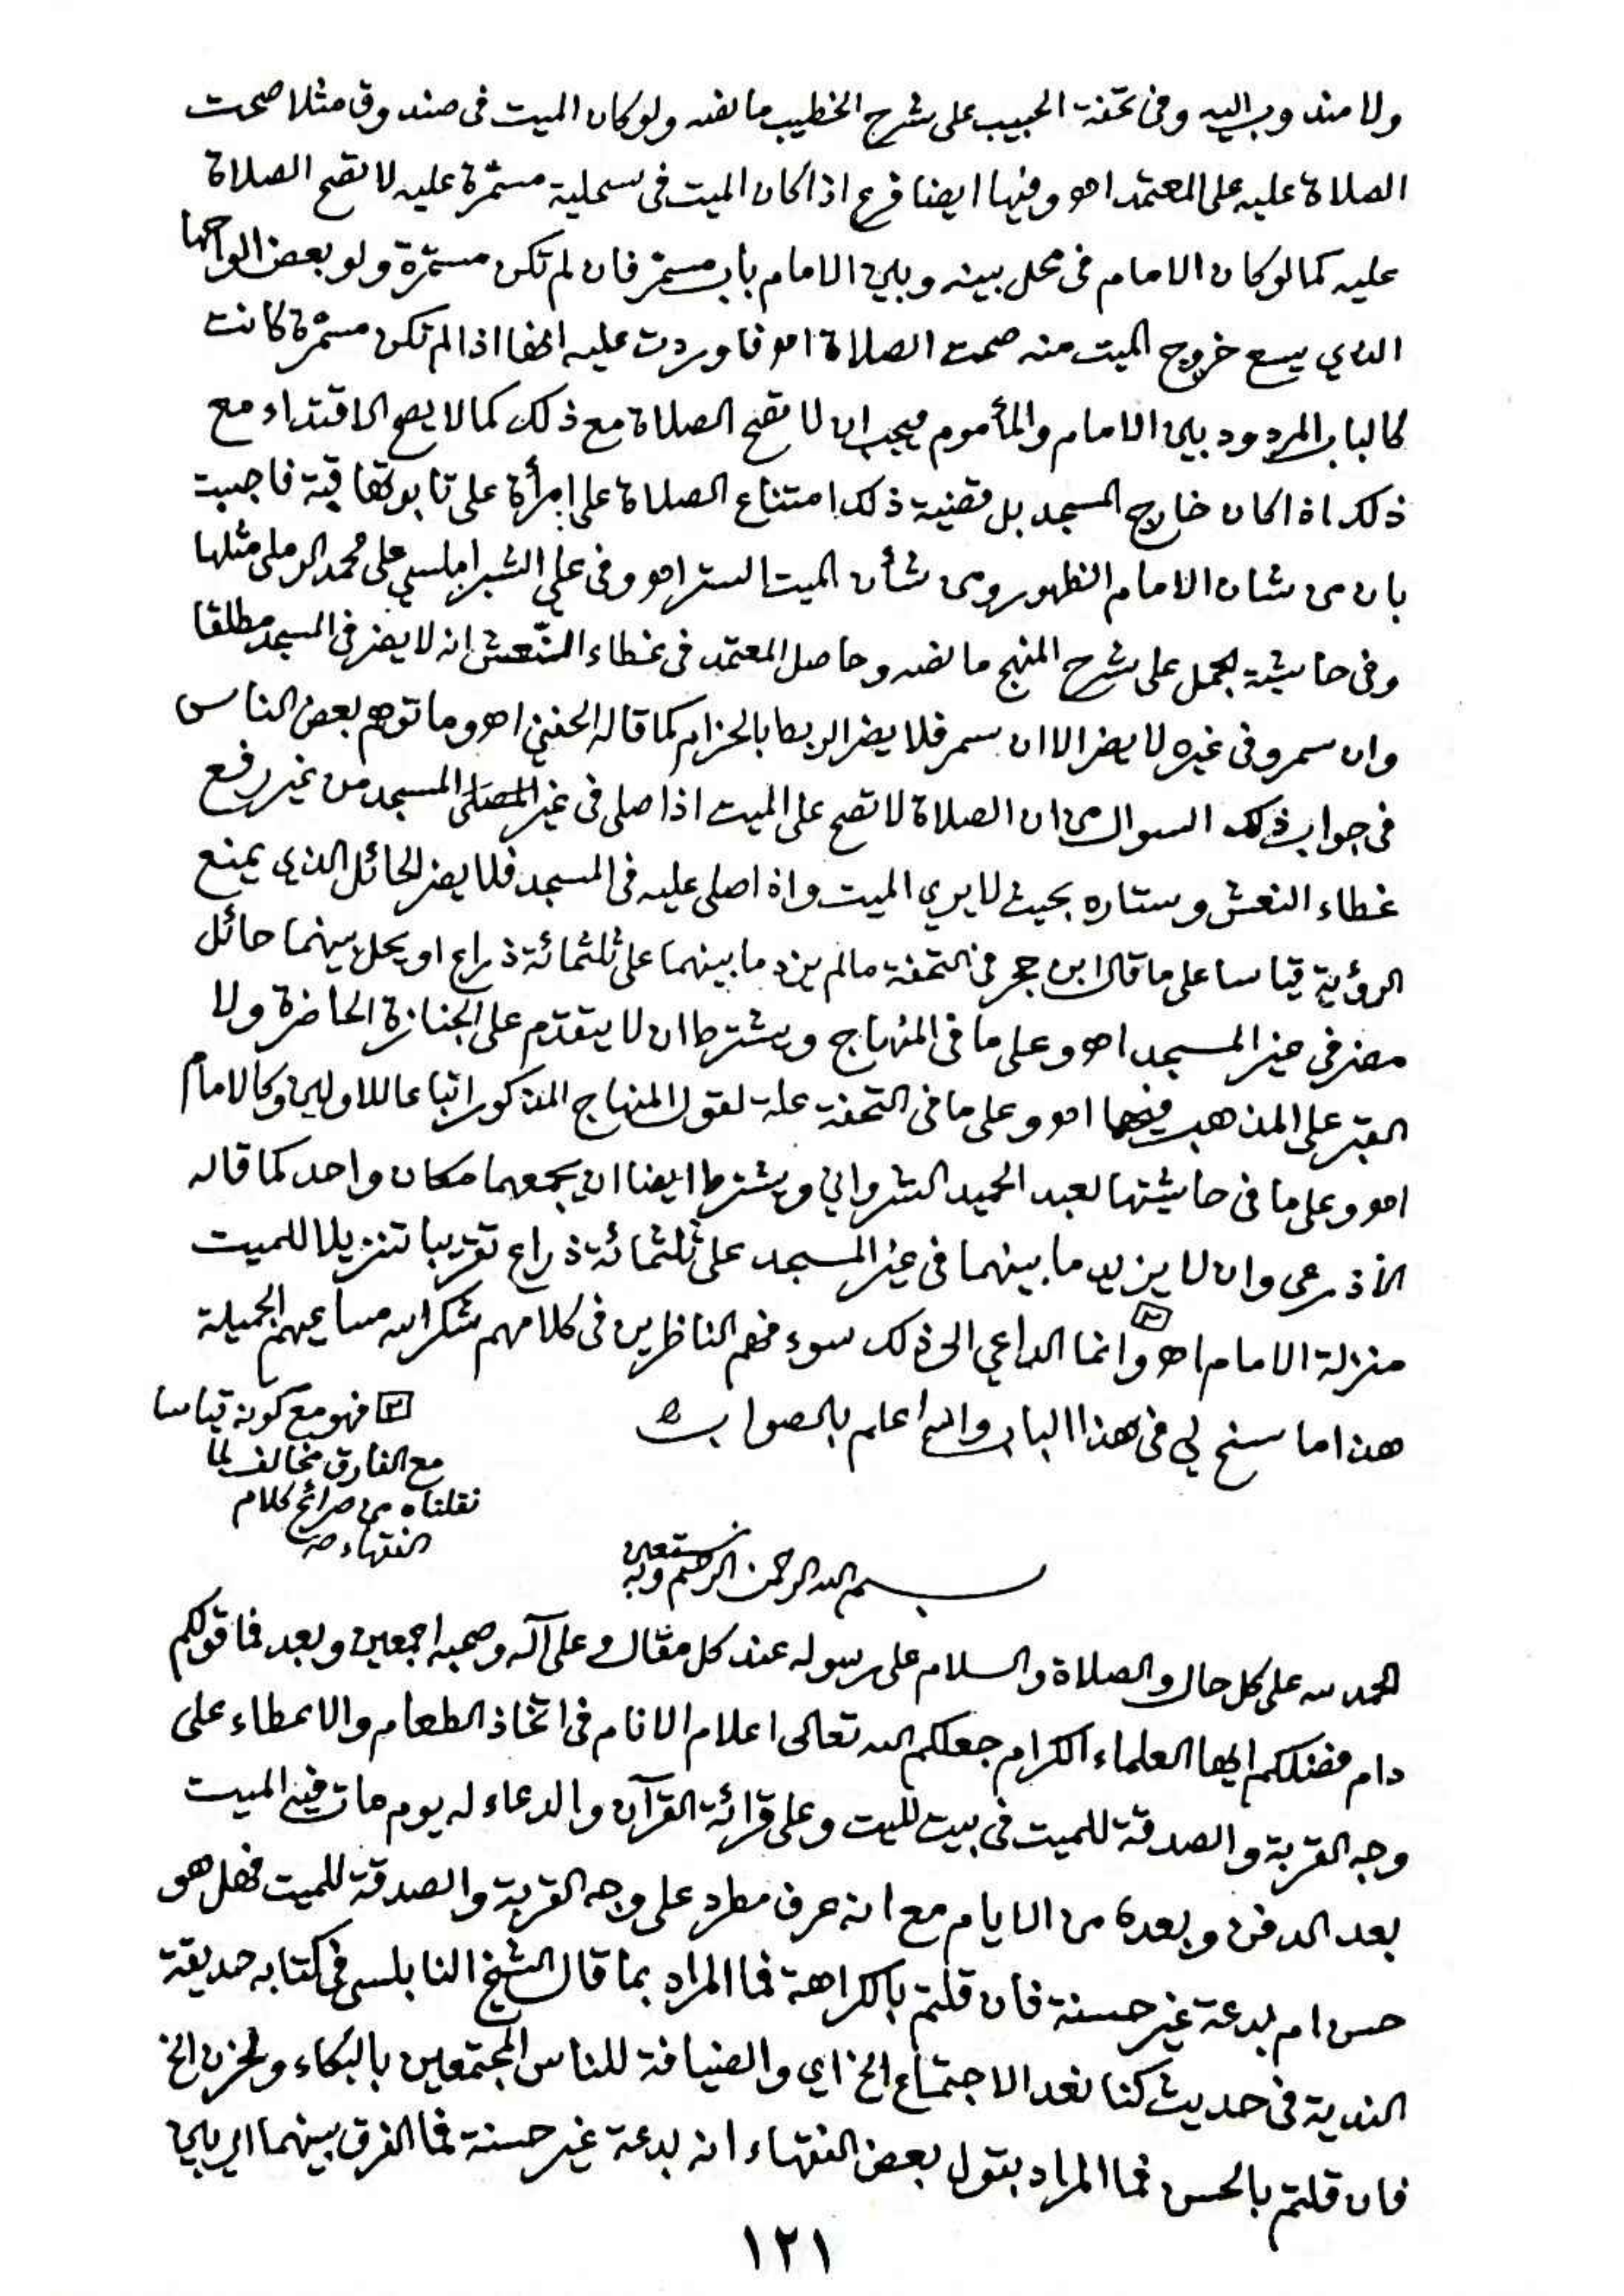 ولا مندوب اليه وفى تحفة الحبيب على شرح الخطيب ما نصه ولو كان الميت فى صندوق مثلا صحت
الصلاة عليه على المعتمد اهـ وفيها ايضا فرع اذا كان الميت فى سحلية مسمّرة عليه لا تصح الصلاة
عليه كما لو كان الامام فى محل بينه وبين الامام باب مسمر فان لم تكن مسمّرة ولو بعض الواحها
الذي يسع خروج الميت منه صحت الصلاة اهـ فاوردت عليه انها اذا لم تكن مسمّرة كانت
كالباب المردود بين الامام والمأموم فيجب ان لا تصح الصلاة مع ذلك كما لا يصح الاقتداء مع
ذلك اذا كان خارج المسجد بل قضية ذلك امتناع الصلاة على إمرأة على تابوتها قبة فاجيبت
بان من شان الامام الظهور ومن شأن الميت الستر اهـ وفى علي الشبراملسي على محمد الرملى مثلها
وفى حاشية الجمل على شرح المنهج ما نصه وحاصل المعتمد فى غطاء النّعش انه لا يضر فى المسجد مطلقا
وان سمر وفى غيره لا يضر الا ان سمر فلا يضر الربط بالحزام كما قاله الحفني اهـ وما توهم بعض الناس
فى جواب ذلك السوال من ان الصلاة لا تصح على الميت اذا صلى فى غير المسجد من غير رفع
غطاء النعش وستاره بحيث لا يري الميت واذا صلى عليه فى المسجد فلا يضر الحائل الذى يمنع
الرؤية قياسا على ما قال ابن حجر فى التحفة ما لم يزد ما بينهما على ثلثمائة ذراع او يحل بينهما حائل
مضر في غير المسجد اهـ وعلى ما فى المنهاج ويشترط ان لا يتقدم على الجنازة الحاضرة ولا
القبر على المذهب فيهما اهـ وعلى ما فى التحفة علة لقول المنهاج المذكور اتباعا للاولين وكالامام
اهـ وعلى ما فى حاشيتها لعبد الحميد الشرواني ويشترط ايضا ان يجمعهما مكان واحد كما قاله
الأذرعى وان لا يزيد ما بينهما فى غير المسجد على ثلثمائة ذراع تقريبا تنزيلا للميت
منزلة الامام اهـ وانما الداعي الى ذلك سوء فهم الناظرين فى كلامهم شكر الله مساعيهم الجميلة
هذا ما سنح لي فى هذا الباب والله اعلم بالصواب
فهو مع كونه قياسا
مع الفارق مخالف لما
نقلناه من صرائح كلام
الفقهاء
بسم الله الرحمن الرحيم وبه نستعين
الحمد لله على كل حال والصلاة والسلام على رسوله عند كل مقال وعلى آله وصحبه اجمعين وبعد فما قولكم
دام فضلكم ايها العلماء الكرام جعلكم الله تعالى اعلام الانام فى اتخاذ الطعام والاعطاء على
وجه القربة والصدقة للميت فى بيت الميت وعلى قرائة القرآن والدعاء له يوم مات فيه الميت
بعد الدفن وبعده من الايام مع انه عرف مطرد على وجه القربة والصدقة للميت فهل هو
حسن ام بدعة غير حسنة فان قلتم بالكراهة فما المراد بما قال الشيخ النابلسى فى كتابه حديقة
الندية فى حديث كنا نعد الاجتماع الخ اي والضيافة للناس المجتمعين بالبكاء والحزن الخ
فان قلتم بالحسن فما المراد بقول بعض الفقهاء انه بدعة غير حسنة فما الفرق بينهما اى بين
١٢١